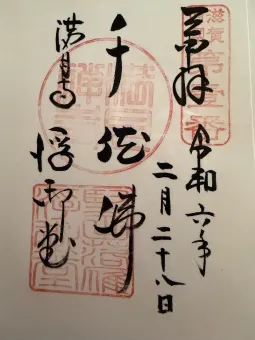 奉拝
滋賀第壹番
令和六年
二月二十八日
千体佛
満月寺
浮御堂